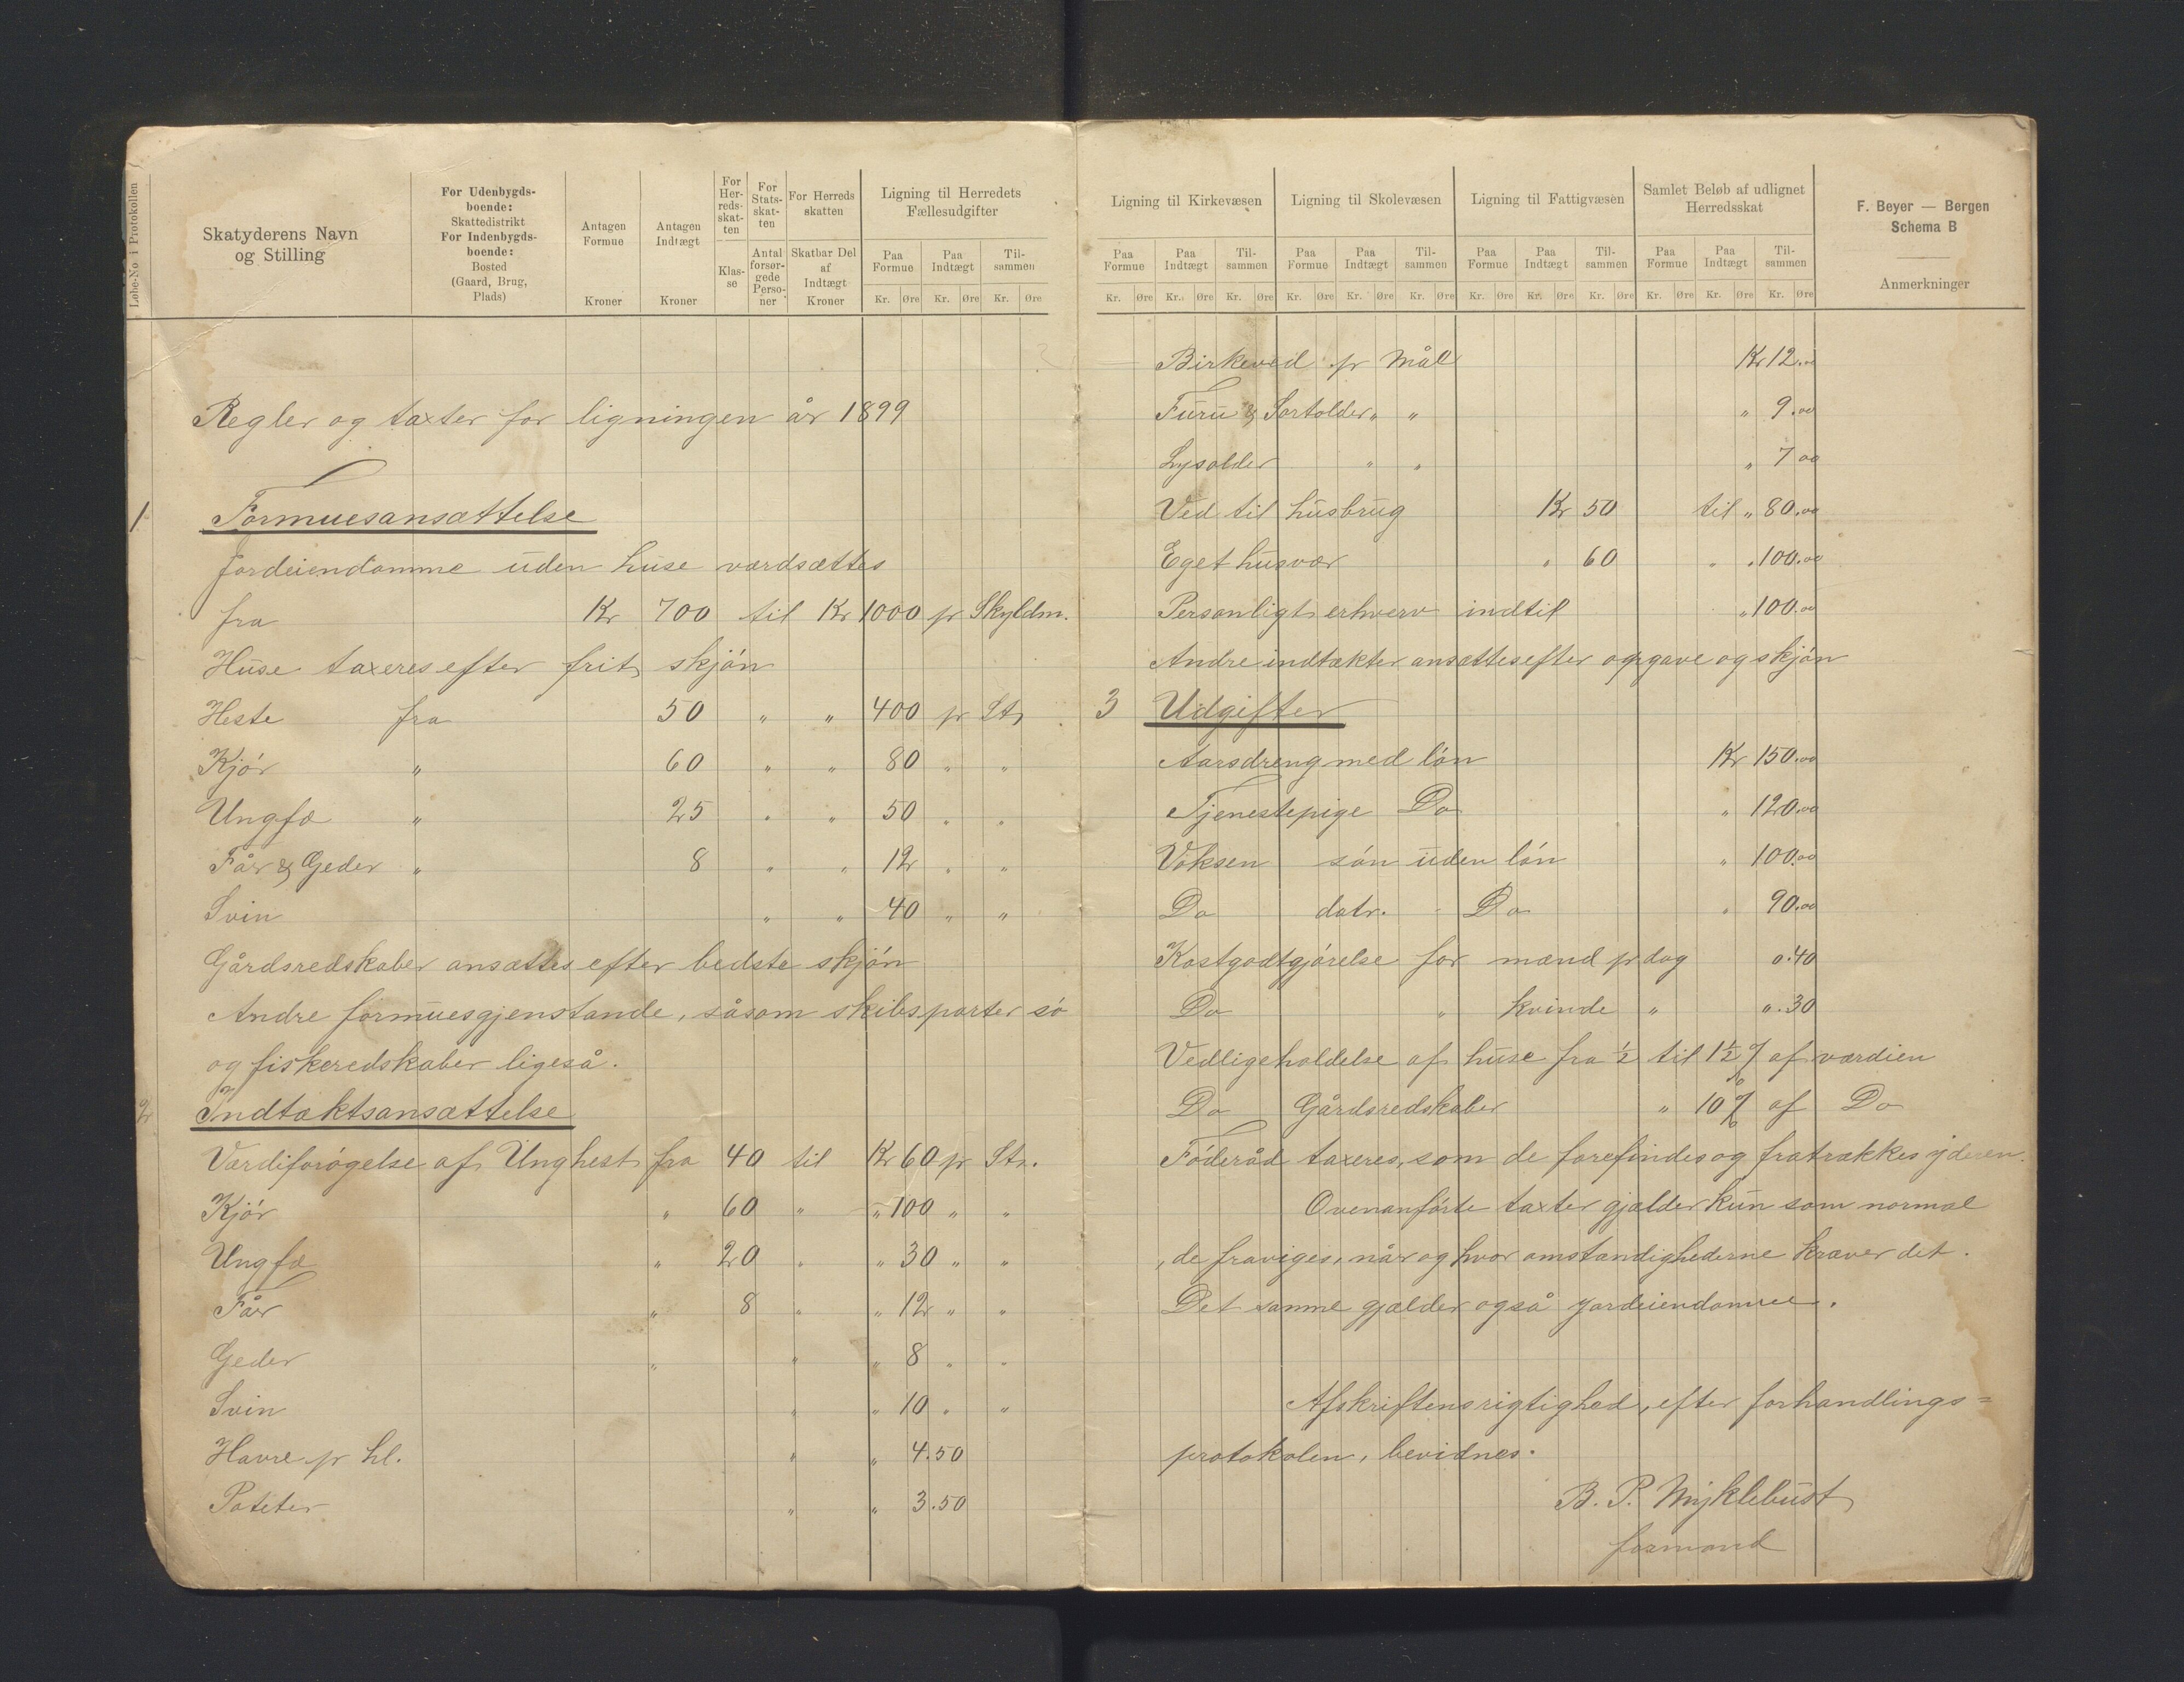 Løbe-No i Protokollen
Skatyderens Navn
og Stilling
For Udenbygds-
boende:
Skattedistrikt
For Indenbygds-
boende:
Bosted
(Gaard, Brug,
Plads)
Antagen
Formue
Kroner
Antagen
Indtægt
Kroner
For
Her-
reds-
skat-
ten
Klas-
se
For
Stats-
skat-
ten
Antal
forsør-
gede
Perso-
ner
For Herreds
skatten
Skatbar Del
af
Indtægt
Kroner
Ligning til Herredets
Fællesudgifter
Paa Formue Paa Indtægt Til- sammen
Kr. Øre Kr. Øre Kr. Øre
Regler og taxter for ligningen år 1899
1 Formuesansættelse
Jordeiendomme uden huse værdsættes
fra Kr 700 til Kr 1000 pr Skyldm.
Huse taxeres efter frit skjón
Heste fra 50 " " 400 pr St
Kjór " 60 " " 80 " "
Ungfæ " 25 " " 50 " "
Får & Geder " 8 " " 12 " "
Svin " " 40 " "
Gårdsredskaber ansættes efter bedste skjón
Andre formuesgjenstande, såsom skibsparter só
og fiskeredskaber ligeså.
2 Indtæktsansættelse
Værdiforógelse af Unghest fra 40 til Kr 60 pr St.
Kjór " 60 " " 100 " "
Ungfæ " 20 " " 30 " "
Får " 8 " " 12 " "
Geder " " " 8 " "
Svin " " 10 " "
Havre pr hl. " " 4.50
Poteter " " 3.50
Ligning til Kirkevæsen Ligning til Skolevæsen Ligning til Fattigvæsen Samlet Beløb af udlignet
Herredsskat
Paa Formue Paa Indtægt Til- sammen Paa Formue Paa Indtægt Til- sammen Paa Formue Paa Indtægt Til- sammen Paa Formue Paa Indtægt Til- sammen
Kr. Øre Kr. Øre Kr. Øre Kr. Øre Kr. Øre Kr. Øre Kr. Øre Kr. Øre Kr. Øre Kr. Øre Kr. Øre Kr. Øre
F. Beyer — Bergen
Schema B
Anmerkninger
Birkeved pr Mål Kr 12.00
Furu & Sortolder " " " 9.00
Lysolder " " " 7 00
Ved til husbrug Kr 50 til " 80.00
Eget husvær " 60 " " 100.00
Personligt erhverv indtil " 100.00
Andre indtækter ansættes efter opgave og skjón
3 Udgifter
Aarsdreng med lón Kr 150.00
Tjenestepige Do " 120.00
Voksen són uden lón " 100.00
Do datr. " Do " 90.00
Kostgodtgjórelse for mænd pr dag 0.40
Do " kvinde " ".30
Vedligeholdelse af huse fra ½ til 1½ % af værdien
Do Gårdsredskaber " 10 % af Do
Fóderåd taxeres, som de forefindes og fratrækkes yderen.
Ovenanfórte taxter gjælder kun som normal
, de fraviges, når og hvor omstændighederne kræver det.
Det samme gjælder også jordeiendomme.
Afskriftens rigtighed, efter forhandlings=
protokolen, bevidnes.
B. P. Myklebust
formand